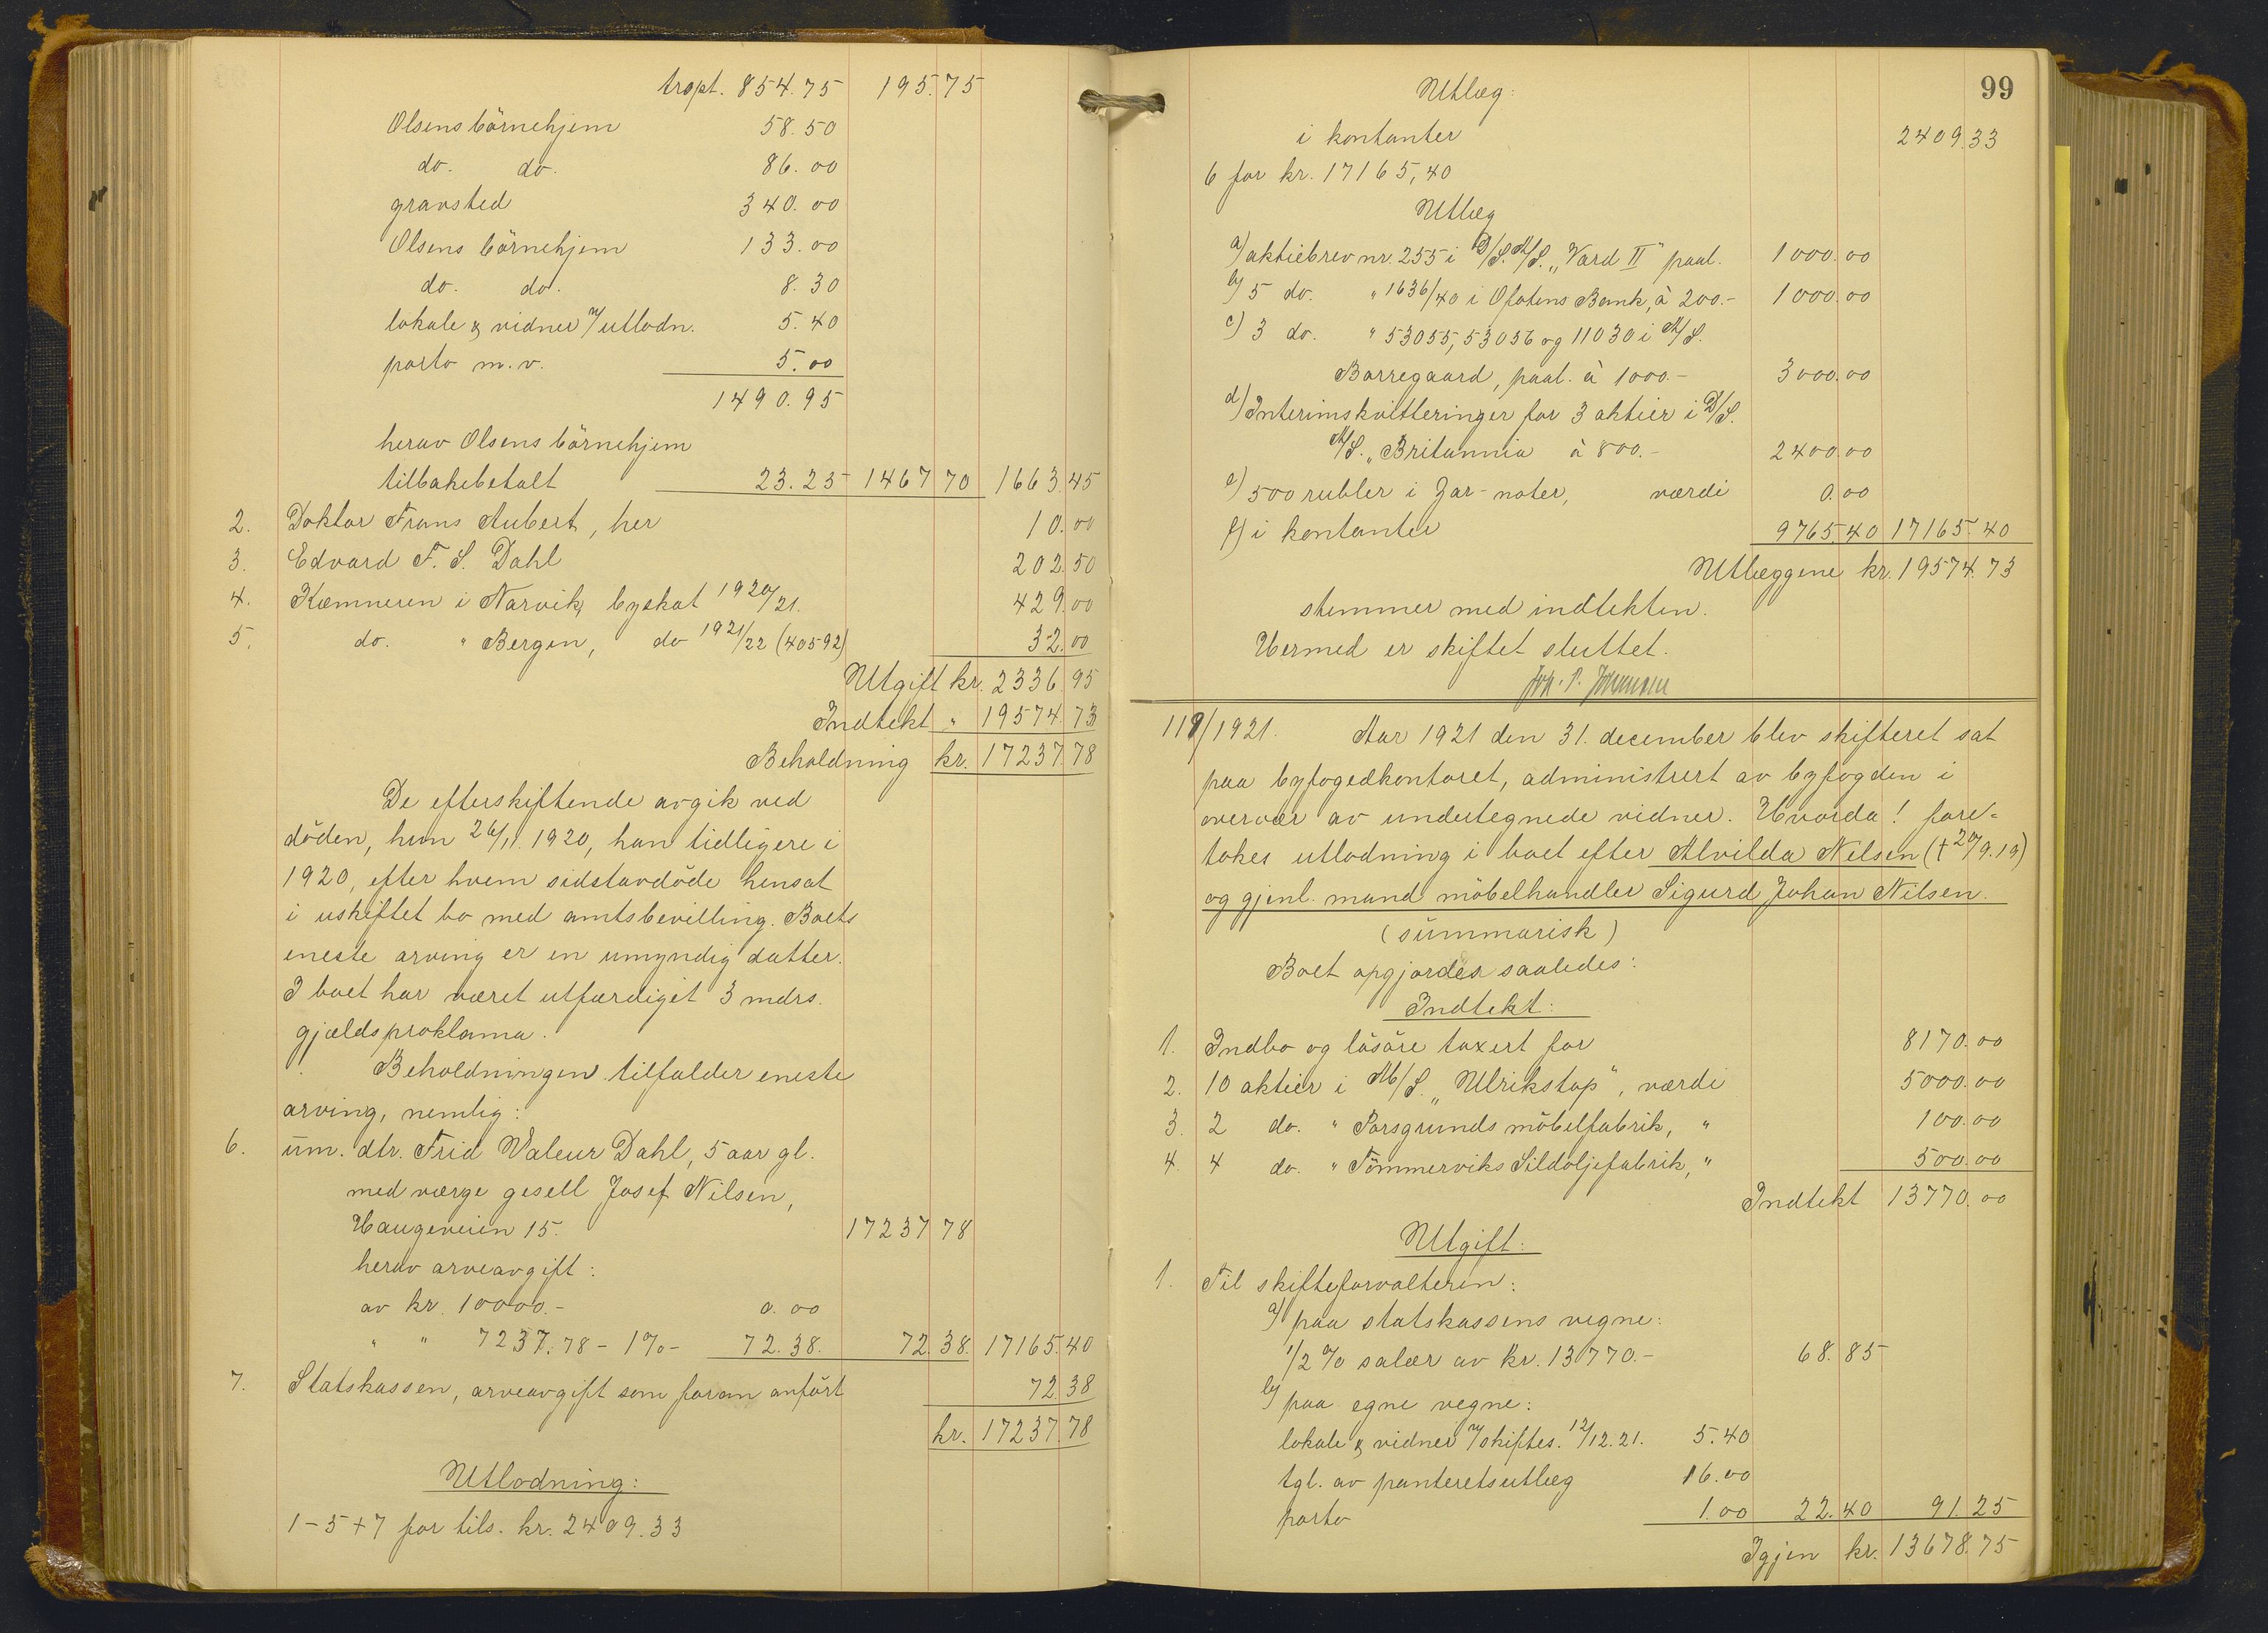 trspt. 854.75 195.75
Olsens börnehjem 58.50
do. do. 86.00
gravsted 340.00
Olsens börnehjem 133.00
do. do. 8.30
lokale & vidner v/utlodn. 5.40
porto m.v. 5.00
1490.95
herav Olsens börnehjem
tilbakebetalt 23.25 1467 70 1663.45
2. Doktor Frans Aubert, her 10.00
3. Edvard F. S. Dahl 202.50
4. Kæmneren i Narvik, byskat 1920/21. 429.00
5. do. " Bergen, do 1921/22 (40592) 32.00
Utgift kr. 2336.95
Indtekt " 19574.73
Beholdning kr. 17237.78
De efterskiftende avgik ved
döden, hun 26/11.1920, han tidligere i
1920, efter hvem sidstavdöde hensat
i uskiftet bo med amtsbevilling. Boets
eneste arving er en umyndig datter.
I boet har været utfærdiget 3 mdrs.
gjældsproklama.
Beholdningen tilfalder eneste
arving, nemlig:
6. um. dtr. Frid Valeur Dahl, 5 aar gl.
med værge gesell Josef Nilsen,
Haugeveien 15. 17237 78
herav arveavgift:
av kr. 10000.- 0.00
" " 7237.78 - 1% - 72.38. 72.38. 17165.40
7. Statskassen, arveavgift som foran anfört 72.38
kr. 17237.78
Utlodning:
1-5+7 for tils. kr. 2409.33
99
Utlæg:
i kontanter 2409.33
6 for kr. 17165,40
Utlæg
a) aktiebrev nr. 255 i D/S. A/S. „Vard II" paal. 1000.00
b) 5 do. " 1636/40 i Ofotens Bank, à 200.- 1000.00
c) 3 do. " 53055, 53056 og 11030 i A/S.
Borregaard, paal. à 1000.- 3000.00
d) Interimskvitteringer for 3 aktier i D/S.
A/S. „Britannia à 800.- 2400.00
e) 500 rubler i Zar-noter, værdi 0.00
f) i kontanter 9765.40 17165.40
Utlæggene kr. 19574.73
stemmer med indtekten.
Hermed er skiftet sluttet.
119/1921. Aar 1921 den 31. december blev skifteret sat
paa byfogedkontoret, administrert av byfogden i
overvær av undertegnede vidner. Hvorda! fore=
tokes utlodning i boet efter Alvilda Nilsen († 20/9.19)
og gjenl. mand möbelhandler Sigurd Johan Nilsen.
(summarisk)
Boet opgjordes saaledes:
Indtekt:
1. Indbo og lösöre taxert for 8170.00
2. 10 aktier i M/S. „Ulrikstop", værdi 5000.00
3. 2 do. " Porsgrunds möbelfabrik, " 100.00
4. 4 do. " Tömmerviks Sildoljefabrik, " 500.00
Indtekt 13770.00
Utgift:
1. Til skifteforvalteren:
a) paa statskassens vegne:
1/2 % salær av kr. 13770.- 68.85
b) paa egne vegne:
lokale & vidner v/skiftes. 12/12.21. 5.40
tgl. av panteretsutlæg 16.00
porto 1.00 22.40 91.25
Igjen kr. 13678.75